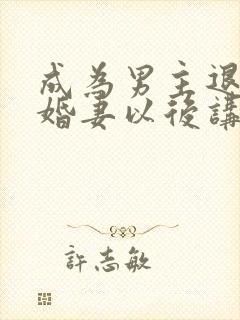 成為男主退
婚妻以後講
許志敏